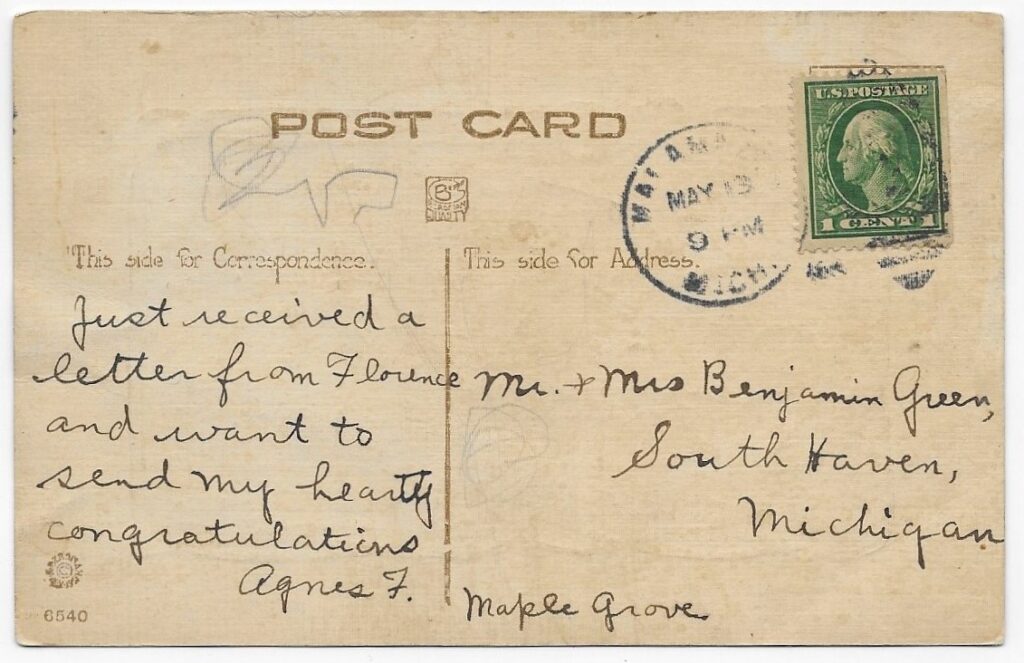 POST CARD
U.S. POSTAGE
1 CENT 1
MAY 13
9 PM
MICH.
QUALITY
This side for Correspondence.
This side for Address.
Just received a
letter from Florence
and want to
send my hearty
congratulations
Agnes F.
Mr. + Mrs Benjamin Green,
South Haven,
Michigan
Maple Grove
6540